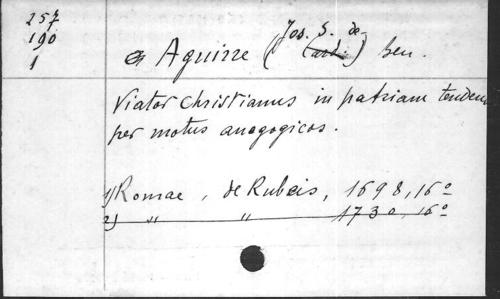 257
190
1
a Aguirre (Jos. S. de Card.) ben.
Viator Christianus in patriam tendens
per motus anagogicos.
1) Romae, de Rubeis, 1698, 16º
2) " " 1730, 16º